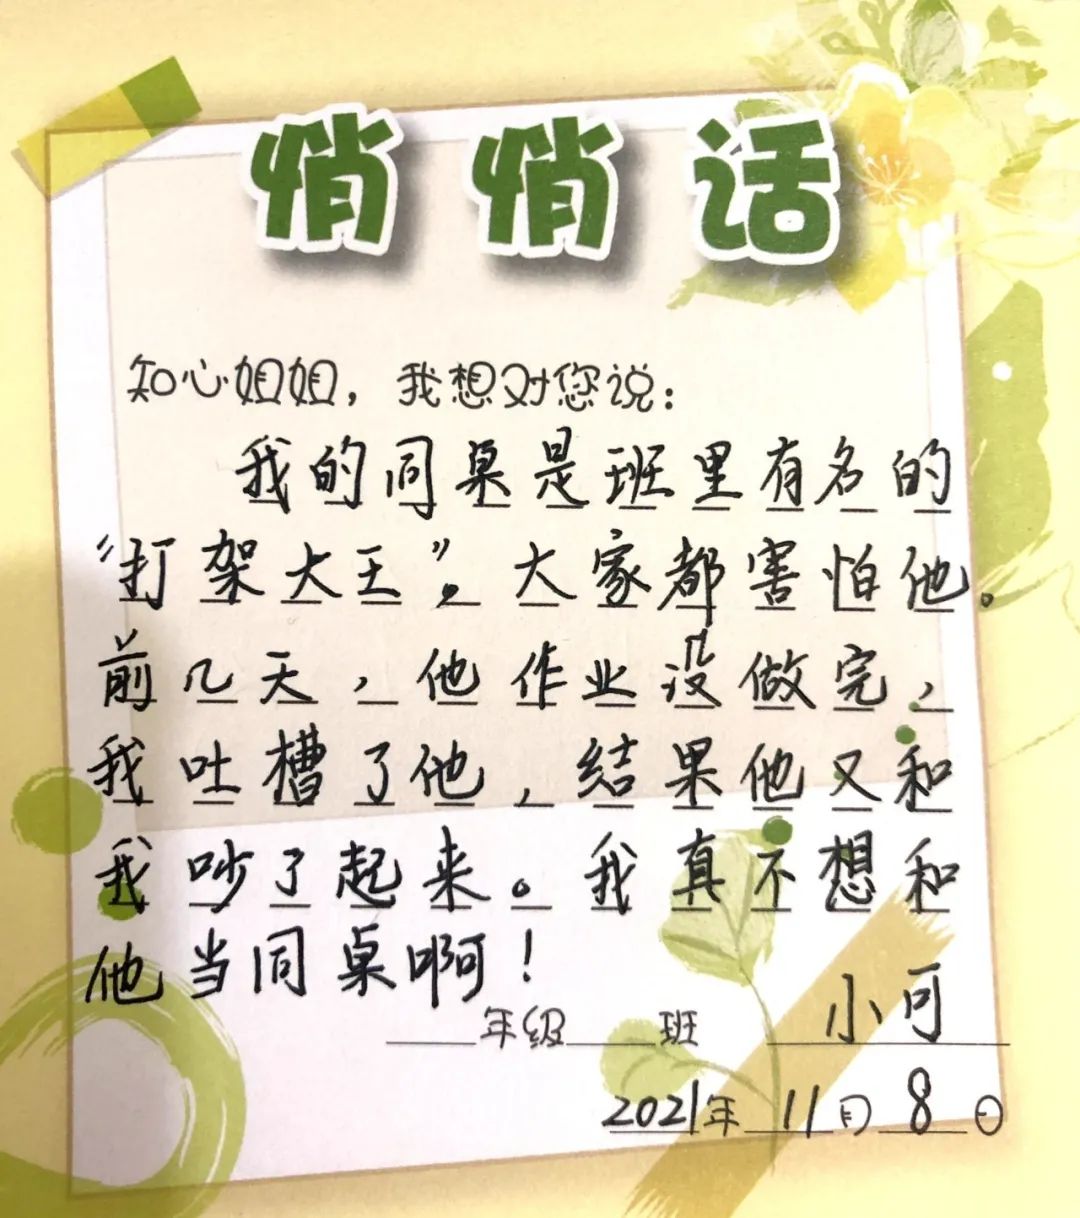 悄悄话
知心姐姐，我想对您说：
我的同桌是班里有名的
“打架大王”。大家都害怕他。
前几天，他作业没做完，
我吐槽了他，结果他又和
我吵了起来。我真不想和
他当同桌啊！
____年级____班 小可
2021年11月8日